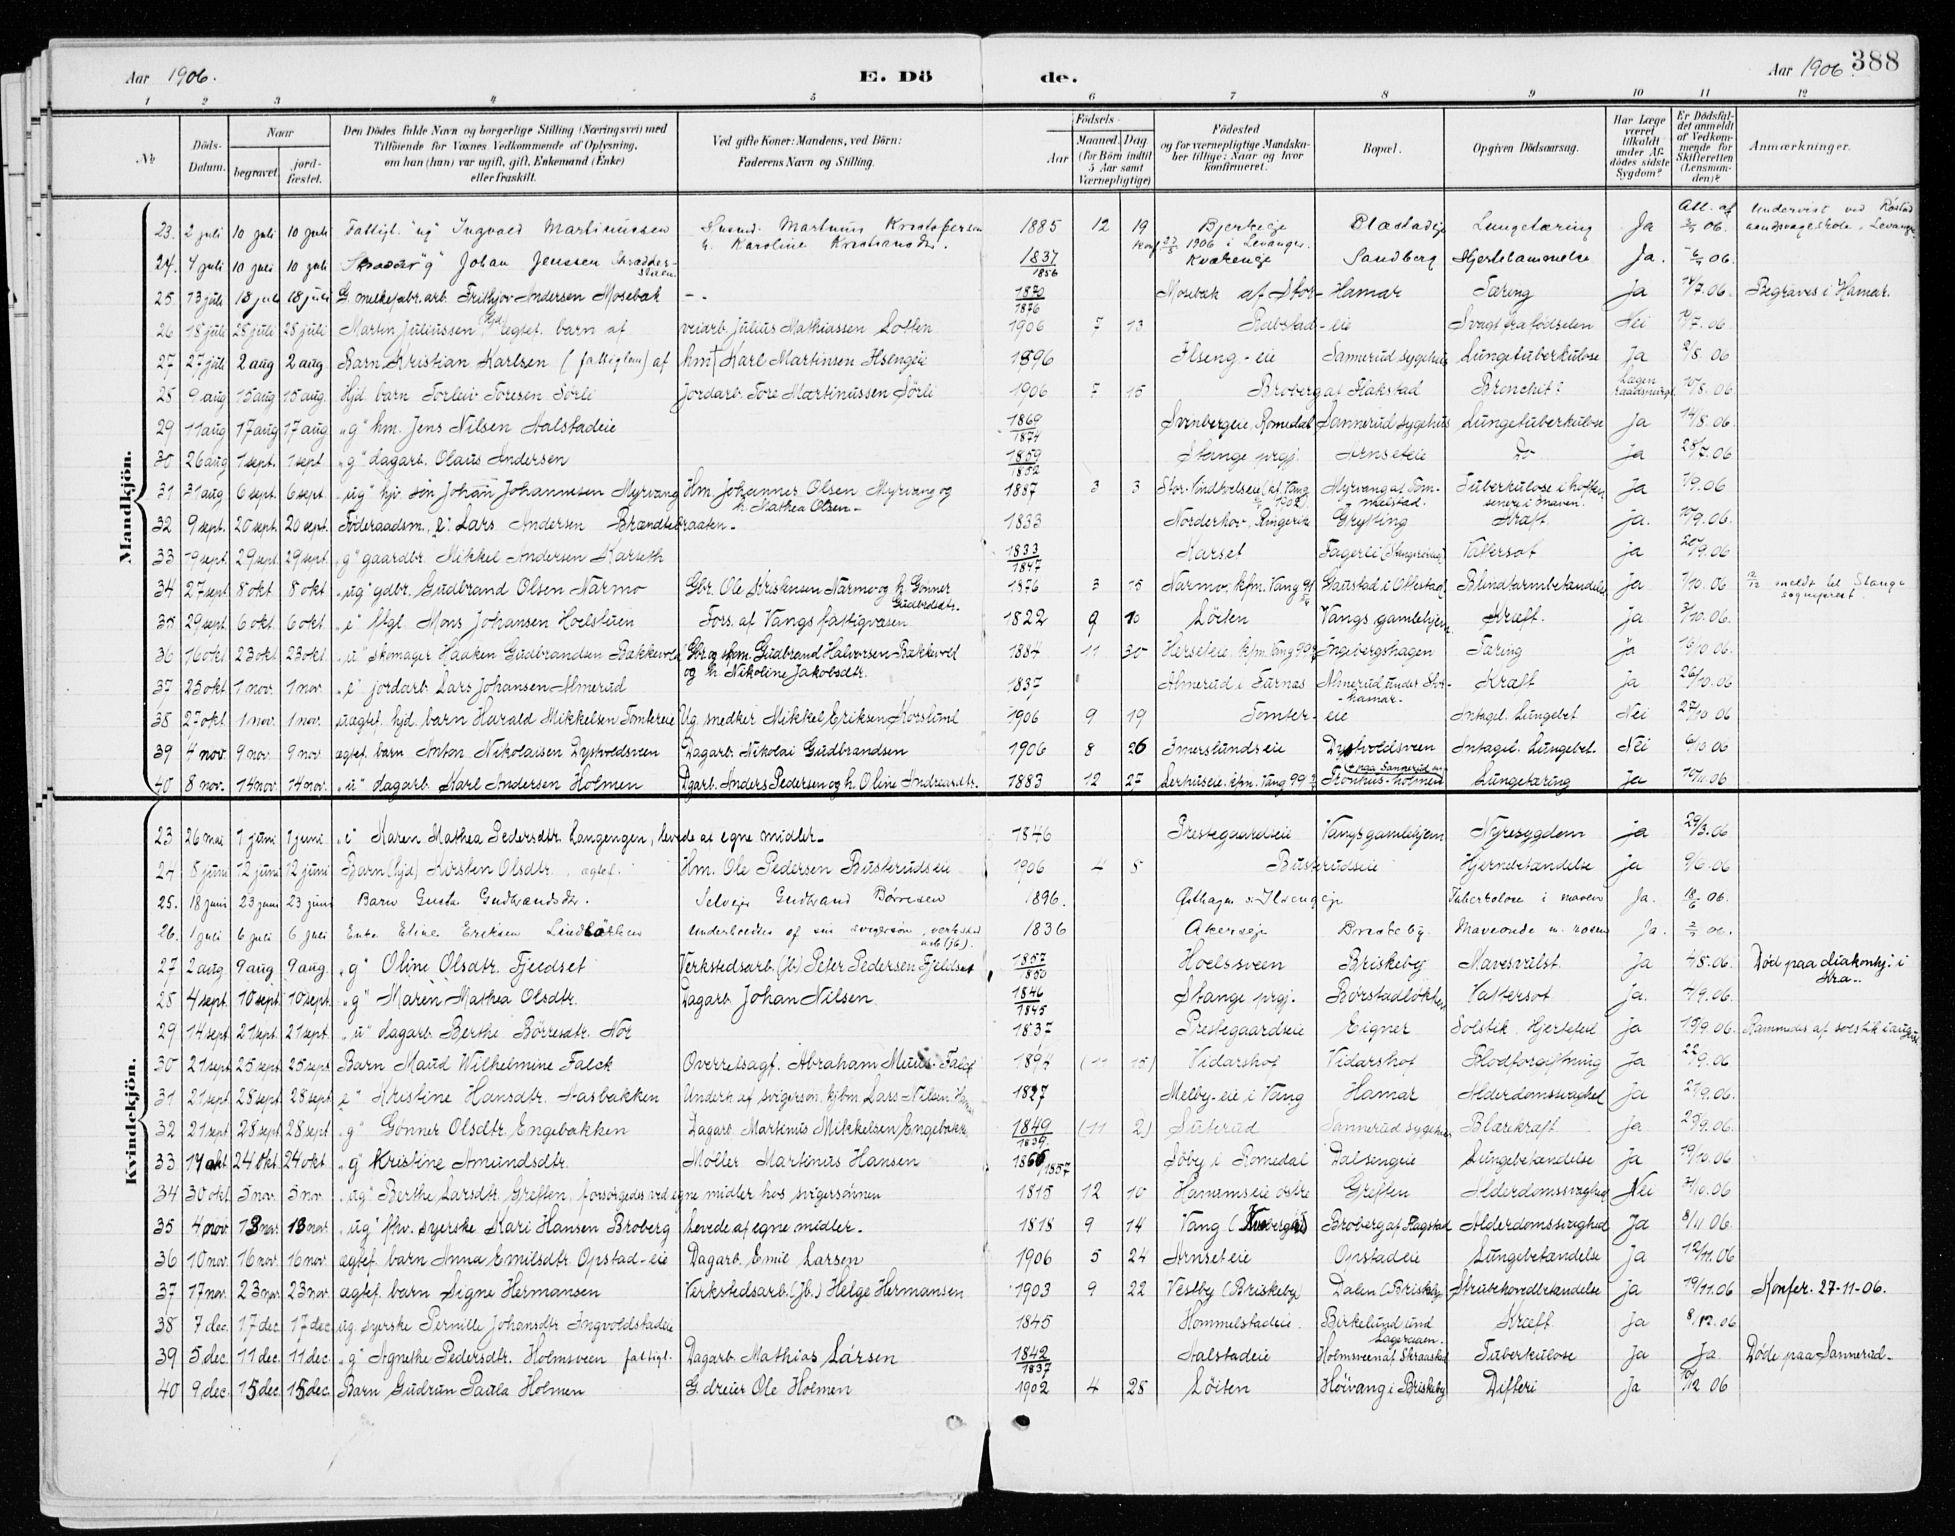 Aar 1906. E. Dö de. Aar 1906. 388
1 2 3 4 5 6 7 8 9 10 11 12
No
Döds-Datum.
Naar
begravet.
jord-fæstet.
Den Dödes fulde Navn og borgerlige Stilling (Næringsvei) med
Tilföiende for Voxnes Vedkommende af Oplysning,
om han (hun) var ugift, gift, Enkemand (Enke)
eller fraskilt.
Ved gifte Koner: Mandens, ved Börn:
Faderens Navn og Stilling.
Födsels-
Aar
Maaned. Dag
(for Börn indtil
5 Aar samt
Værnepligtige)
Födested
og for værnepligtige Mandska-
ber tillige: Naar og hvor
konfirmeret.
Bopæl.
Opgiven Dödsaarsag.
Har Læge
været
tilkaldt
under Af-
dödes sidste
Sygdom?
Er Dödsfal-
det anmeldt
af Vedkom-
mende for
Skifteretten
(Lensman-
den)?
Anmærkninger.
Mandkjön.
23. 2 juli 10 juli 10 juli Fattigl. "ug" Ingvald Martinussen Martinus Kristofersen 1885 12 19 Bjerkeeje Blæstadeje Lungetæring Ja Att. af 06. Undervist ved Røstad
Karoline 1906 i Levanger aandssvageskole, Levanger
24. 4 juli 10 juli 10 juli "g" Johan Jenssen 1837/1856 Kværneeje Sandberg Hjertelammelse Ja. 06.
25. 13 juli 18 juli 18 juli G. melkefabr.arb. Frithjov Andersen Mosebæk - - 1870/1876 Mosebæk af Stor-Hamar Tæring Ja 14/7.06. Begraves i Hamar.
26 18 juli 28 juli 28 juli Martin Juliussen, hjd. ægtef. barn af veiarb. Julius Mathiassen Lotten 1906 7 13 Rabstad-eie Svagt fra fødselen Nei 7.06.
27 27 juli 2 aug 2 aug Barn Kristian Karlsen (fattiglem) af hm. Karl Martinsen Ilsengeie 1896 Ilseng-eie Sannerud sygehus Lungetuberkulose Ja 2/8.06
28 9 aug 15 aug 15 aug. Hjd. barn Torleiv Toresen Sörli Jordarb. Tore Martinussen Sörli 1906 7 15 Broberg af Flakstad Bronchit? Lægen raadspurgt 10/8.06.
29 11 aug 17 aug 17 aug "g" hm. Jens Nilsen Aalstadeie 1869/1874 Svenbergeie, Romedal Sannerud sygehus Lungetuberkulose Ja 14/8.06.
30 26 aug 1 sept. 1 sept "g" dagarb. Olaus Andersen 1859/1852 Stange prgj. Arnseteie Do ja 28/7.06
31 31 aug 6 sept. 6 sept. "ug" hjv. sön Johan Johannesen Myrvang Hm. Johannes Olsen Myrvang og 1887 3 3 Stor-Vindholseie (kf. Vang Myrvang af Tom- Tuberkulose i hoften Ja 1/9.06
h. Mathea Olsen - 1902) melstad. senere i maven.
32 9 sept. 20 sept. 20 sept. Föderaadsm. "e" Lars Andersen Brændtebraaten - 1833 Norderhov, Ringerike Grytting Kræft ja. 10/9.06.
33 19 sept 29 sept. 29 sept. "g" gaardbr. Mikkel Andersen Karseth 1833/1847 Karset Fagerli (Stangeskog) Vattersot ja 20/9.06
34 27 sept 8 okt 8 okt "ug" gdbr. Gudbrand Olsen Narmo Gbr. Ole Kristensen Narmo og h. Gönner 1876 3 15 Narmo, kfm. Vang 91 Gaustad i Ottestad Blindtarmbetændelse Ja 1/10.06 meldt til Stange
Gudbrdsdtr. sogneprest.
35 29 sept. 6 okt. 6 okt. "e" ftgl. Mons Johansen Hoelstuen Fors. af Vangs fattigvæsen 1822 9 10 Löiten Vangs gamlehjem Kræft. Ja 3/10.06.
36 16 okt 23 okt 23 okt. "u" skomager Haaken Gudbrandsen Bakkevold Gbr. og skom. Gudbrand Halvorsen Bakkevold 1884 11 30 Herseteie kfm. Vang 99 Ingebergshagen Tæring ja 19/10 06
og h. Nikoline Jakobsdtr.
37 25 okt 1 nov. 1 nov. "e" jordarb. Lars Johansen Almerud 1837 Almerud i Furnæs Almerud under Stor- Kræft ja 26/10.06
hamar -
38 27 okt 1 nov. 1 nov. uægtef. hjd. barn Harald Mikkelsen Tomtereie Ug. snedker Mikkel Eriksen Korslund 1906 9 19 Tomter-eie Antagel. Lungebet. Nei 27/10 06
39 4 nov. 9 nov. 9 nov. ægtef. barn Anton Nikolaisen Dystvoldsveen Dagarb. Nikolai Gudbrandsen 1906 8 26 Imerslundseie Dystvoldsveen Antagel. Lungebet. Nei 06
40 8 nov. 14 nov. 14 nov. "u" dagarb. Karl Andersen Holmen Dgarb. Anders Pedersen og h. Oline Andreasdtr. 1883 12 27 Lerhuseie. kfm. Vang 99 Stenhus-holmen Lungetæring Ja 10/11.06
Kvindekjön.
23 26 mai 1 juni 1 juni "e" Karen Mathea Pedersdtr. Langengen, levede af egne midler - 1846 Prestegaardseie Vangs gamlehjem Nyresygdom ja 29/5.06
24 5 juni 12 juni 12 juni Barn (hjd) Kirsten Olsdtr. ægtef. Hm. Ole Pedersen Busterudseie 1906 4 5 Busterudseie Hjernebetændelse ja 9/6.06
25. 18 juni 23 juni 23 juni Barn Gusta Gudbrandsdtr. Selveje Gudbrand Børresen 1896. Østhagen v. Ilsengeje Tuberkulose i maven Ja. 18/6 06.
26. 1 juli 6 juli 6 juli Enke Eline Eriksen Lindløkken Underholdtes af sin svigersøn, verksted 1836 Akerseje Briskeby. Maveonde m. rosen Ja. 06.
arb. (jb.).
27 2 aug 9 aug. 9 aug. "g" Oline Olsdtr. Fjeldset Verkstedsarb. (jb) Peter Pedersen Fjeldset 1857/1850 Hoelsveen Briskeby Mavesvulst Ja 4/8.06. Død paa diakonhj. i
Kra..
28 4 sept. 10 sept. 10 sept. "g" Maren Mathea Olsdtr. Dagarb. Johan Nilsen 1846/1845 Stange prgj. Børstadløkken Vattersot Ja. 4/9.06.
29 14 sept 21 sept. 21 sept. "u" dagarb. Berthe Börresdtr. Nor 1837 Prestegaardseie Eigner Solstik. Hjertefeil ja 15/9.06. Rammedes af solstik i august.
30 21 sept 25 sept 25 sept Barn Maud Wilhelmine Falck Overretsagf. Abraham Falck 1894 (11 15) Vidarshof Vidarshof Blodforgiftning Ja 22/9.06
31 21 sept 28 sept 28 sept "e" Kristine Hansdtr. Aasbakken Underh. af svigersøn, kjbm. Lars Nilsen, 1827 Melby-eie i Vang Hamar Alderdomssvaghed Ja 21/9.06.
32 21 sept 28 sept 28 sept "g" Gönner Olsdtr. Engebakken Dagarb. Martinus Mikkelsen Engebakken 1849/1839. (11 2) Suterud Sannerud sygehus Blærekræft Ja 25/9.06.
33 17 okt 24 okt. 24 okt "g" Kristine Amundsdtr. Möller Martinus Hansen 1866/1857 Söby i Romedal Dalsengeie Lungebetændelse Ja 19/10.06
34 30 okt. 5 nov. 5 nov. "ug" Berthe Larsdtr. Greften, forsörgedes ved egne midler hos svigersönnen 1815 12 10 Hammseie østre Greften Alderdomssvaghed Nei 31/10.06
35 4 nov. 13 nov. 13 nov. "ug" fhv. syerske Kari Hansen Broberg Levede af egne midler - 1818 9 14 Vang ( ) Broberg af Flagstad Alderdomssvaghed Ja 8/11 06.
36 10 nov. 16 nov. 16 nov. ægtef. barn Anna Emilsdtr. Opstad-eie Dagarb. Emil Larsen 1906 5 24 Arnseteie Opstadeie Lungebetændelse Ja 12/11.06
37 17 nov. 23 nov. 23 nov. ægtef. barn Signe Hermansen Verkstedsarb. (Jb.) Helge Hermansen 1903 9 22 Vestby (Briskeby) Dalen (Briskeby) Strubehovedbetændelse Ja 19/11.06 Konfer. 27-11-06.
38 7 dec. 17 dec. 17 dec. ug. syerske Pernille Johansdtr Ingvoldstadeie 1845 Hommelstadeie. Birkelund und Kræft Ja 8/12.06
Lageraaen.
39 5 dec. 11 dec. 11 dec. "g" Agnethe Pedersdtr. Holmsveen fattigl. Dagarb. Mathias Larsen 1842/1837 Aalstadeie Holmsveen af Skraastad Tuberkulose Ja Ja Døde paa Sannerud -
40 9 dec. 15 dec. 15 dec. Barn Gudrun Paula Holmen G. dreier Ole Holmen 1902 4 28 Löiten Höivang i Briskeby Difteri Ja 10/12 06